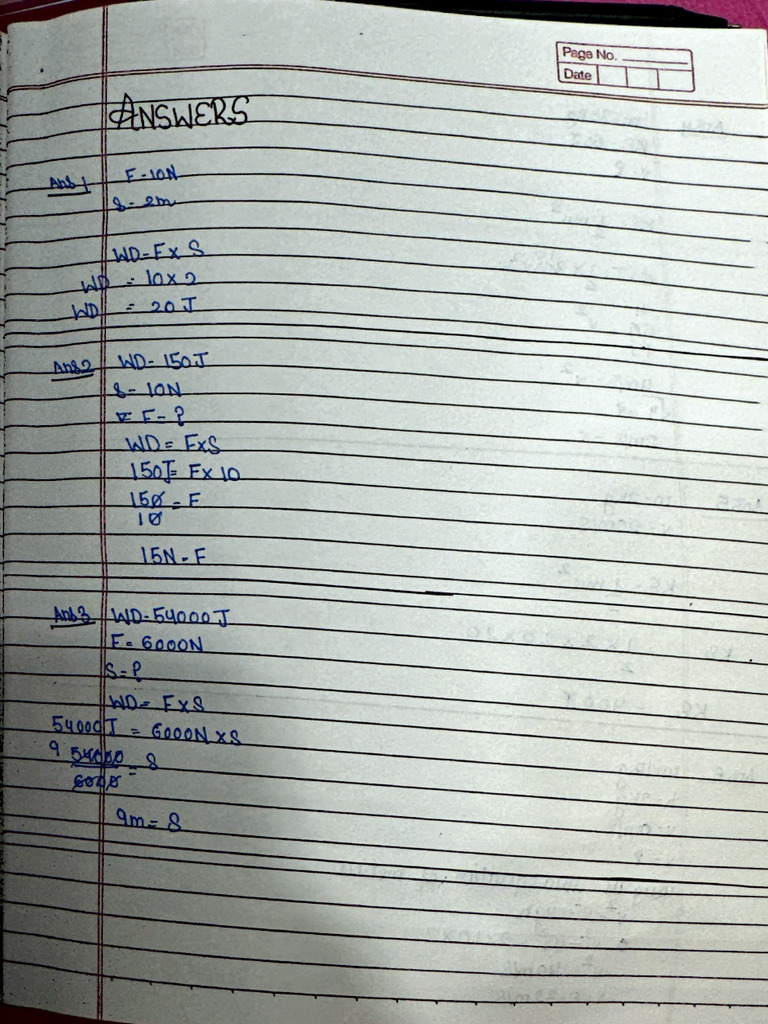 Page No.
Date
ANSWERS
Ans 1 F-10N
S-2m
WD=F×S
WD = 10×2
WD = 20J
Ans2 WD-150J
S-10N
F-?
WD=F×S
150J=F×10
150=F
10
15N-F
Ans3 WD-54000J
F=6000N
S=?
WD=F×S
54000J = 6000N×S
9 54000 = S
6000
9m=S